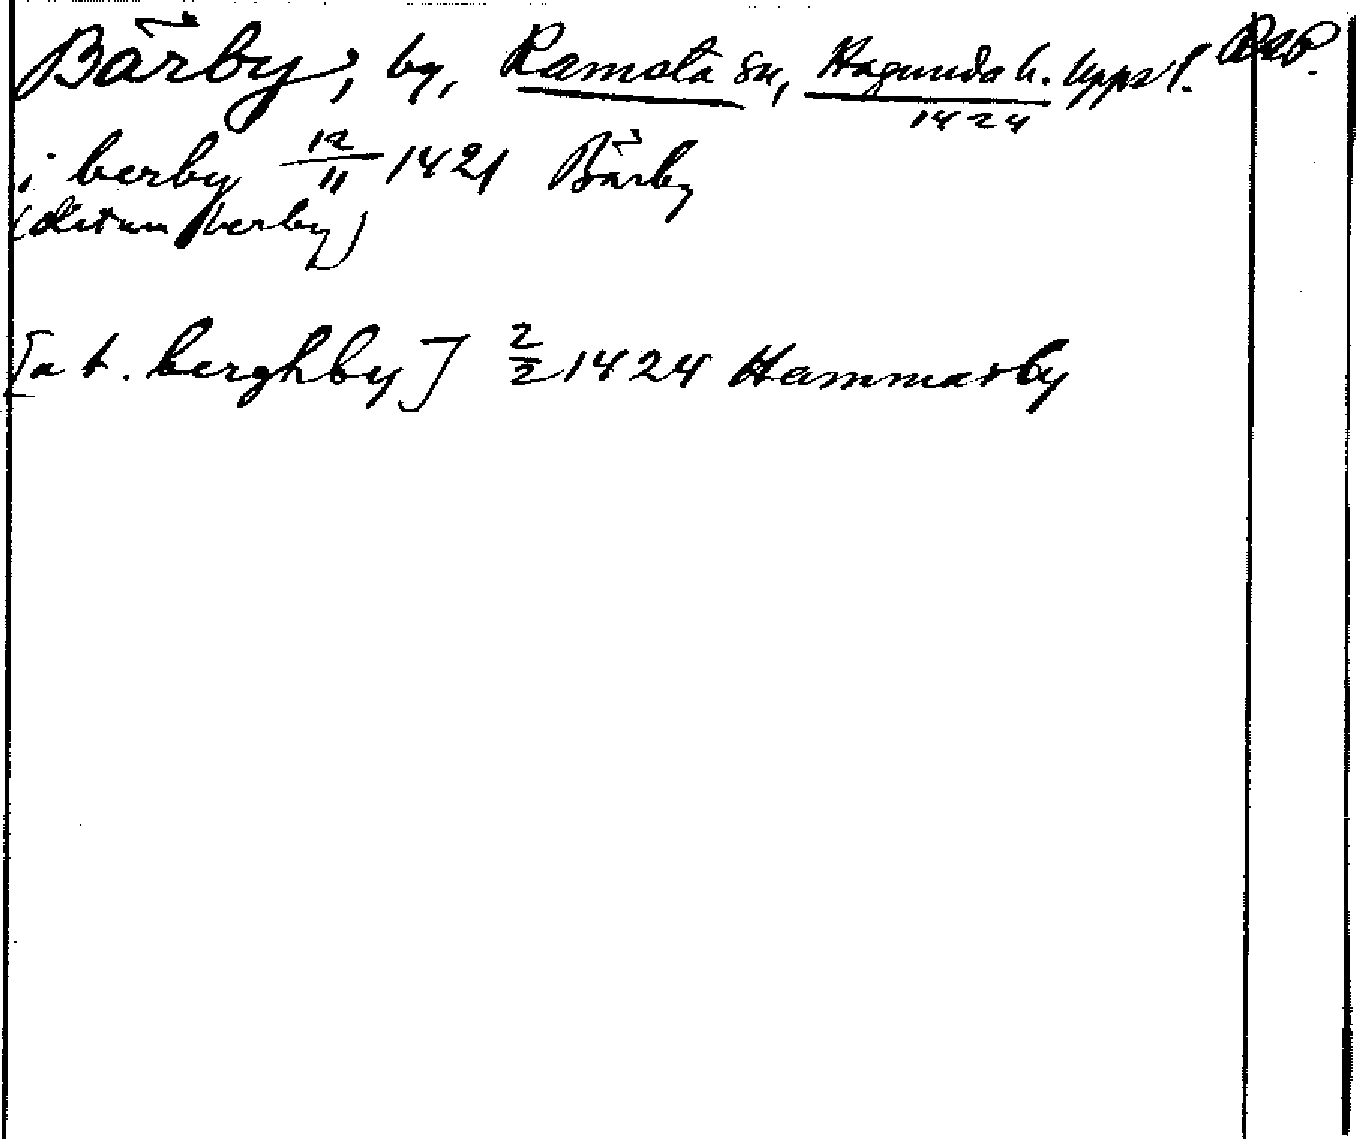 Bärby, by, Ramsta sn, Hagunda h. Upps l.
1424
i berby 12/11 1421 Bärby
(Actum berby)
[a t. berghby] 2/2 1424 Hammarby